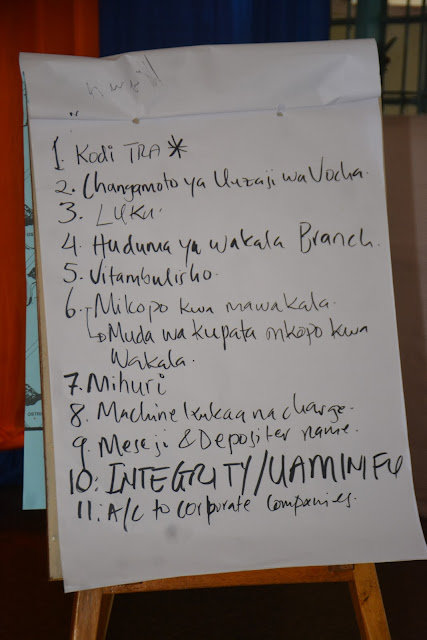 1. Kodi TRA *
2. Changamoto ya Uuzaji wa Vocha.
3. LUKU.
4. Huduma ya wakala Branch.
5. Vitambulisho.
6. Mikopo kwa mawakala.
↳ Muda wa kupata mkopo kwa
Wakala.
7. Mihuri
8. Machine kukaa na charge.
9. Meseji & Depositer name.
10: INTEGRITY/UAMINIFU
11: A/C to corporate companies.